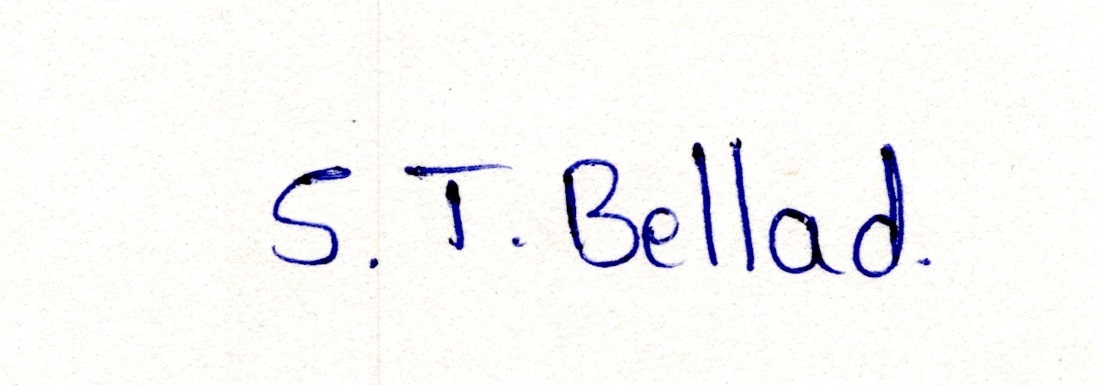 S. T. Bellad.